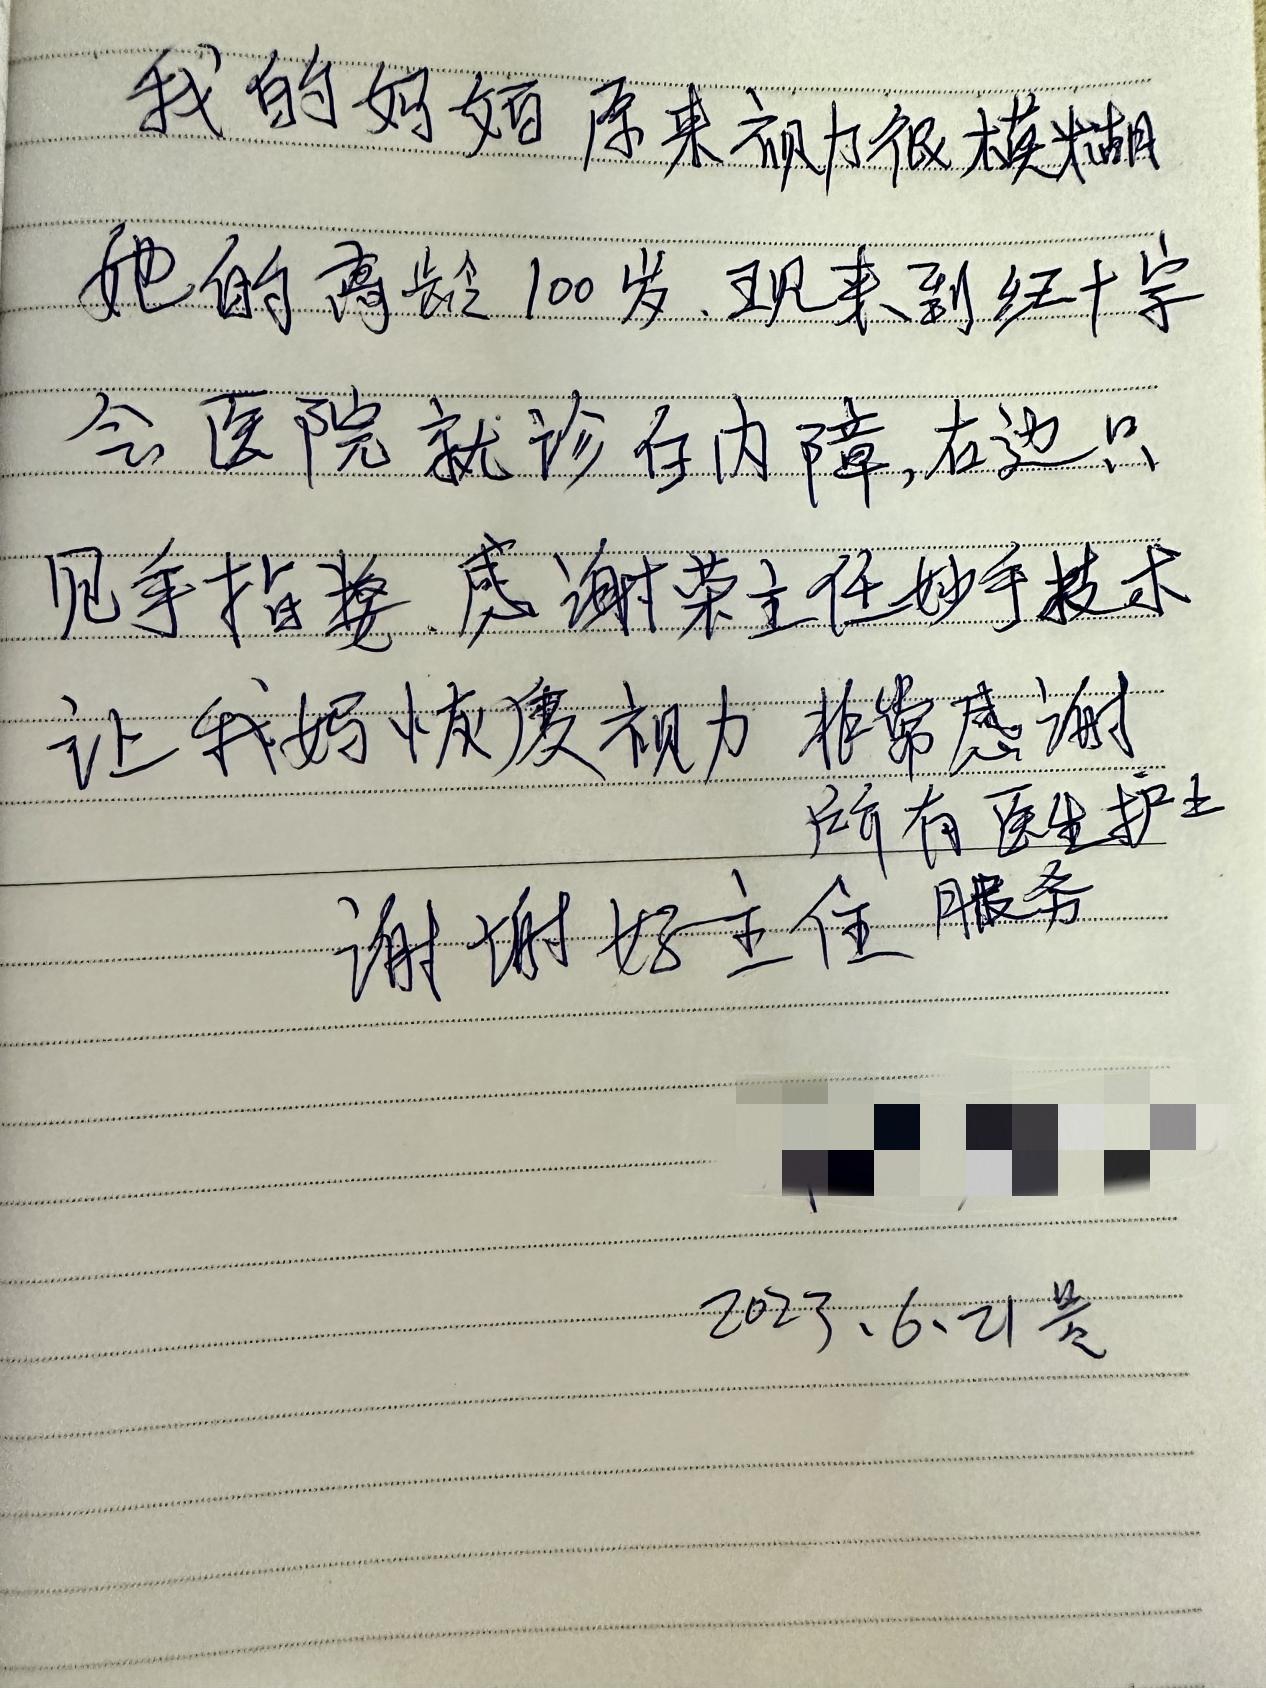 我的妈妈原来视力很模糊
她的高龄100岁、现来到红十字
会医院就诊白内障,右边只
见手指搂、感谢荣主任妙手技术
让我妈恢复视力 非常感谢
所有医生护士
服务
谢谢好主任
2023、6、21